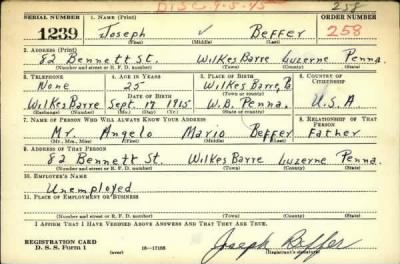 DISC 9-5-45 258
SERIAL NUMBER 1. NAME (Print) ORDER NUMBER
1239 Joseph ✓ Beffer 258
(First) (Middle) (Last)
2. ADDRESS (Print)
82 Bennett St. Wilkes Barre Luzerne Penna.
(Number and street or R. F. D. number) (Town) (County) (State)
3. TELEPHONE 4. AGE IN YEARS 5. PLACE OF BIRTH 6. COUNTRY OF CITIZENSHIP
None 25 Wilkes Barre, Pa
DATE OF BIRTH (Town or county)
Wilkes Barre Sept. 17 1915 W.B. Penna. U.S.A
(Exchange) (Number) (Mo.) (Day) (Yr.) (State or country)
7. NAME OF PERSON WHO WILL ALWAYS KNOW YOUR ADDRESS 8. RELATIONSHIP OF THAT PERSON
Mr. Angelo Mario Beffer Father
(Mr., Mrs., Miss) (First) (Middle) (Last)
9. ADDRESS OF THAT PERSON
82 Bennett St. Wilkes Barre Luzerne Penna.
(Number and street or R. F. D. number) (Town) (County) (State)
10. EMPLOYER'S NAME
Unemployed
11. PLACE OF EMPLOYMENT OR BUSINESS
(Number and street or R. F. D. number) (Town) (County) (State)
I AFFIRM THAT I HAVE VERIFIED ABOVE ANSWERS AND THAT THEY ARE TRUE.
REGISTRATION CARD
D. S. S. Form 1 (over) 16—17105 Joseph Beffer
(Registrant's signature)